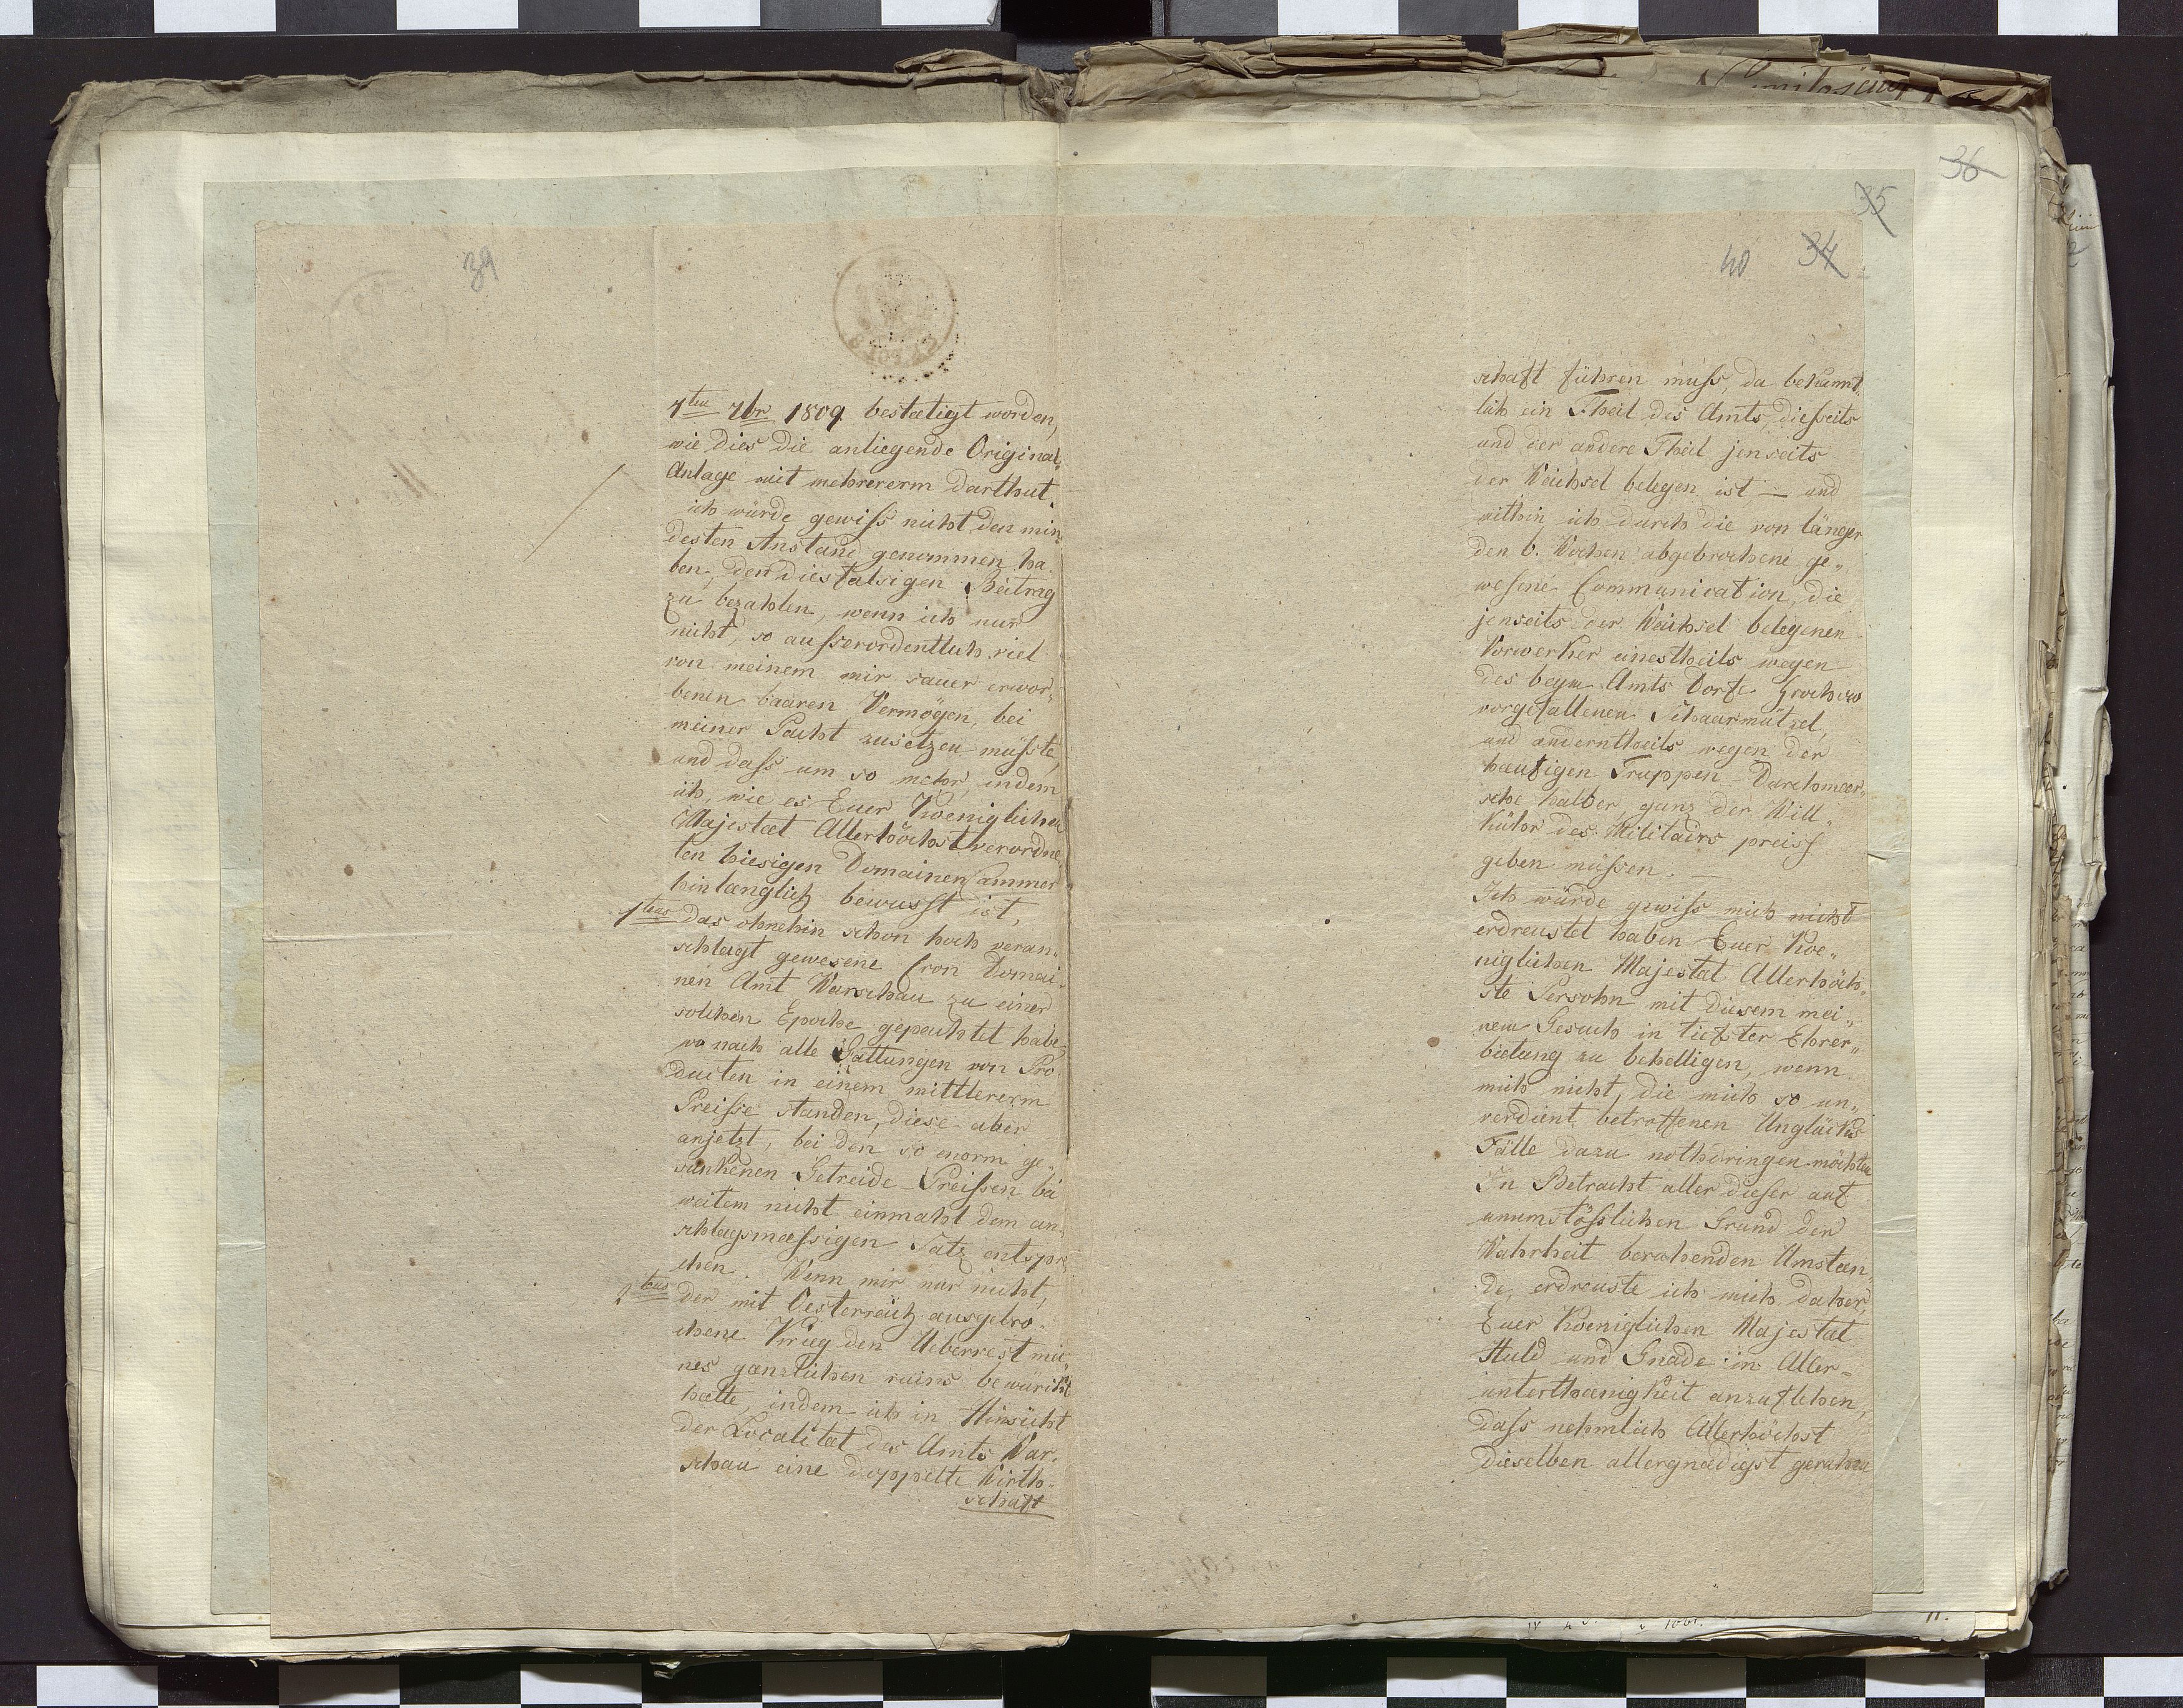 39
7ten 7br 1809. bestaetigt worden,
wie dies die anliegende Original„
Anlage mit mehrererm darthut.
ich würde gewiss nicht den min„
desten Anstand genommen ha„
ben, den diesfalsigen Beitrag
zu bezahlen, wenn ich nur
nicht, so ausserordentlich viel
von meinem mir sauer erwor„
benen baaren Vermögen, bei
meiner Pacht zusetzen müsste,
und dass um so mehr, indem
ich, wie es Euer Koeniglichen
Majestaet Allerhöchst verordne„
ten hiesigen Domainen Cammer
hinlaenglich bewusst ist,
1tens das ohnehin schon hoch veran„
schlagt gewesene Cron Domai„
nen Amt Warschau zu einer
solchen Epoche gepachtet habe,
wo nach alle Gattungen von Pro„
ducten in einem mittlererm
Preisse standen, diese aber
anjetzt, bei den so enorm ge„
sunkenen Getreide Preissen bei
weitem nicht einmahl dem an„
schlagsmaessigen Satz entspre
chen. Wenn mir nur nicht,
2tens der mit Oesterreich ausgebro„
chene Krieg den Ueberrest mei„
nes gaenzlichen ruins bewürckt
haette, indem ich in Hinsicht
der Localitaet des Amts War„
schau eine doppelte Wirth„
schaft
36
35
40 34
schaft führen muss, da bekannt„
lich ein Theil des Amts, diesseits
und der andere Theil jenseits
der Weichsel belegen ist — und
mithin ich durch die von länger
den 6. Wochen abgebrochene ge„
wesene Communication, die
jenseits der Weichsel belegenen
Vorwerker einestheils wegen
des beym Amts Dorfe Grochow
vorgefallenen Schaarmützel,
und anderntheils wegen der
haeufigen Truppen Durchmaer„
sche halber, ganz der Will„
kühr des Militairs preiss
geben müssen. —
Ich würde gewiss mich nicht
erdreustet haben Euer Koe„
niglichen Majestat Allerhöch„
ste Persohn mit diesem mei„
nem Gesuch in tiefster Ehrer„
bietung zu behelligen, wenn
mich nicht, die mich so un„
verdient betroffenen Unglücks
Fälle dazu nothdringen möchten
In Betracht aller dieser auf
unumstösslichen Grund der
Wahrheit beruhenden Umstaen„
de, erdreuste ich mich daher,
Euer Koeniglichen Majestat
Huld und Gnade in Aller„
unterthaenigkeit anzuflehen,
dass nehmlich Allerhöchst
Dieselben allergnaedigst geruhen